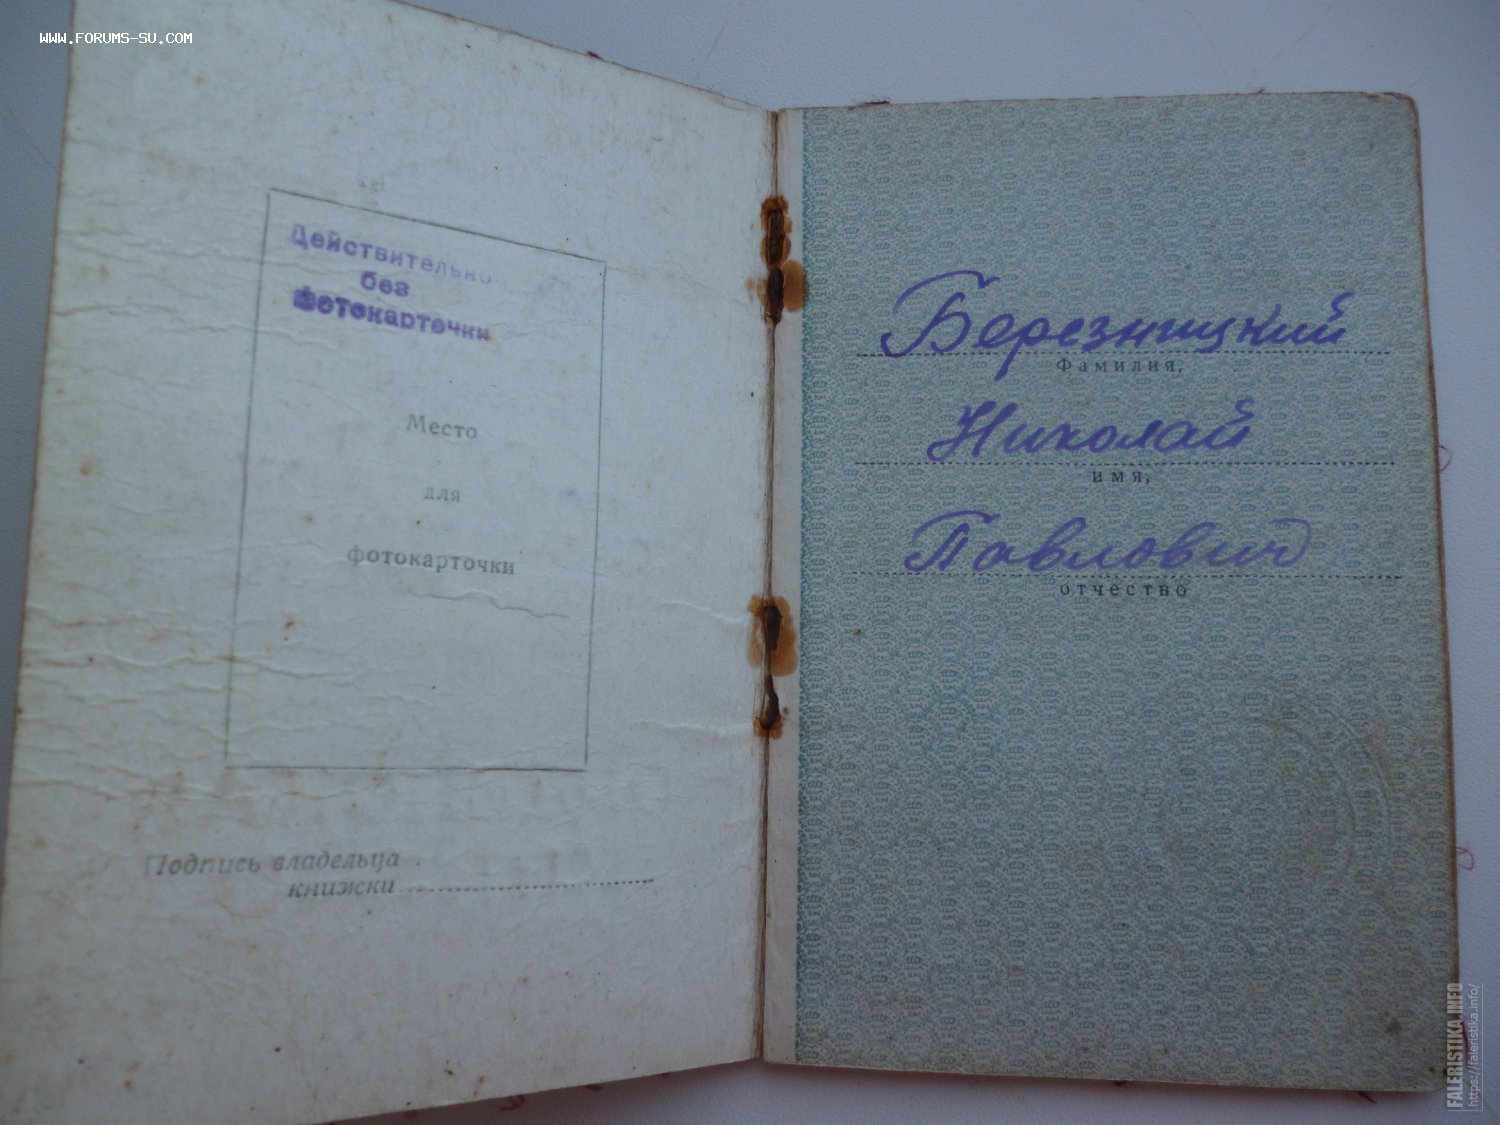 WWW.FORUMS-SU.COM
Действительно
без
фотокарточки
Место
для
фотокарточки
Подпись владельца
книжки
Березницкий
Фамилия,
Николай
имя,
Павлович
отчество
FALERISTIKA.INFO
https://faleristika.info/